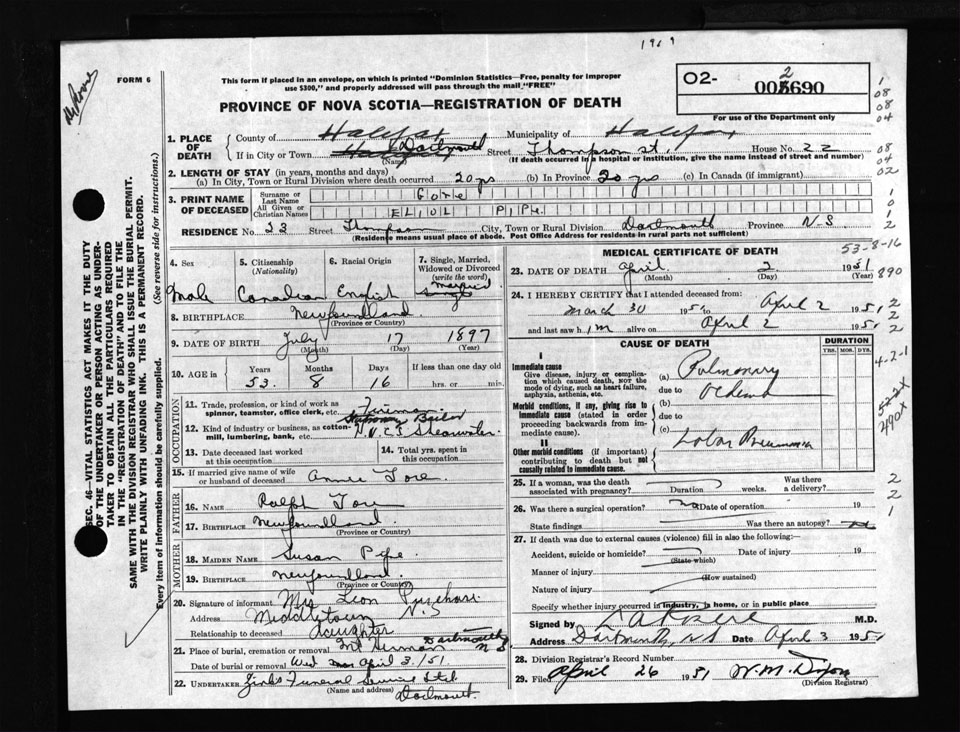 1969
FORM 6
This form if placed in an envelope, on which is printed "Dominion Statistics—Free, penalty for improper
use $300," and properly addressed will pass through the mail "FREE"
02- 2
005690
For use of the Department only
PROVINCE OF NOVA SCOTIA—REGISTRATION OF DEATH
1. PLACE OF DEATH
County of Halifax Municipality of Halifax
If in City or Town Halifax Dartmouth Street Thompson St. House No. 22
(Name) (If death occurred in hospital or institution, give the name instead of street and number)
2. LENGTH OF STAY (in years, months and days)
(a) In City, Town or Rural Division where death occurred 20 yrs (b) In Province 20 yrs (c) In Canada (if immigrant)
3. PRINT NAME OF DECEASED
Surname or Last Name
All Given or Christian Names ELIOL PIPE
RESIDENCE No. 23 Street Thompson City, Town or Rural Division Dartmouth Province N.S
(Residence means usual place of abode. Post Office Address for residents in rural parts not sufficient)
4. Sex
Male
5. Citizenship (Nationality)
Canadian
6. Racial Origin
English
7. Single, Married, Widowed or Divorced (write the word)
Married
8. BIRTHPLACE Newfoundland
(Province or Country)
9. DATE OF BIRTH July 17 1897
(Month) (Day) (Year)
10. AGE Years Months Days If less than one day old
53 8 16 hrs. or min.
OCCUPATION
11. Trade, profession or kind of work as spinner, teamster, office clerk, etc. Fireman
12. Kind of industry or business, as cotton-mill, lumbering, bank, etc. Stationary Boiler
Shearwater
13. Date deceased last worked at this occupation
14. Total yrs. spent in this occupation
15. If married give name of wife or husband of deceased Annie
FATHER
16. NAME Ralph
17. BIRTHPLACE Newfoundland
MOTHER
18. MAIDEN NAME Susan Pipe
19. BIRTHPLACE Newfoundland
(Province or Country)
20. Signature of informant Mrs Leon
Address Middletown N.S
Relationship to deceased daughter
21. Place of burial, cremation or removal Mt Hermon Dartmouth N S
Date of burial or removal Wed April 3/51
22. UNDERTAKER Zink's Funeral Service Ltd
(Name and address) Dartmouth
MEDICAL CERTIFICATE OF DEATH
53-8-16
23. DATE OF DEATH April 2 1951
(Month) (Day) (Year)
890
24. I HEREBY CERTIFY that I attended deceased from:
March 30 1951 to April 2 1951
and last saw him alive on April 2 1951
CAUSE OF DEATH
DURATION
YRS. MOS. DYS.
I
Immediate cause
Give disease, injury or complication which caused death, not the mode of dying, such as heart failure, asphyxia, asthenia, etc.
(a) Pulmonary
due to Oedema
Morbid conditions, if any, giving rise to immediate cause (stated in order proceeding backwards from immediate cause).
(b)
due to
(c) Lobar Pneumonia
II
Other morbid conditions (if important) contributing to death but not causally related to immediate cause.
4-2-1
522X
490X
25. If a woman, was the death associated with pregnancy? Duration weeks. Was there a delivery?
26. Was there a surgical operation? no Date of operation 19
State findings Was there an autopsy? no
27. If death was due to external causes (violence) fill in also the following:
Accident, suicide or homicide? Date of injury 19
(State which)
Manner of injury
(How sustained)
Nature of injury
Specify whether injury occurred in industry, in home, or in public place
Signed by M.D.
Address Dartmouth, N.S Date April 3 1951
28. Division Registrar's Record Number
29. Filed April 26 1951 W.M. Dyson
(Division Registrar)
SEC. 46—VITAL STATISTICS ACT MAKES IT THE DUTY
OF THE UNDERTAKER OR PERSON ACTING AS UNDER-
TAKER TO OBTAIN ALL THE PARTICULARS REQUIRED
IN THE "REGISTRATION OF DEATH" AND TO FILE THE
SAME WITH THE DIVISION REGISTRAR WHO SHALL ISSUE THE BURIAL PERMIT.
WRITE PLAINLY WITH UNFADING INK. THIS IS A PERMANENT RECORD.
Every item of information should be carefully supplied. (See reverse side for instructions.)